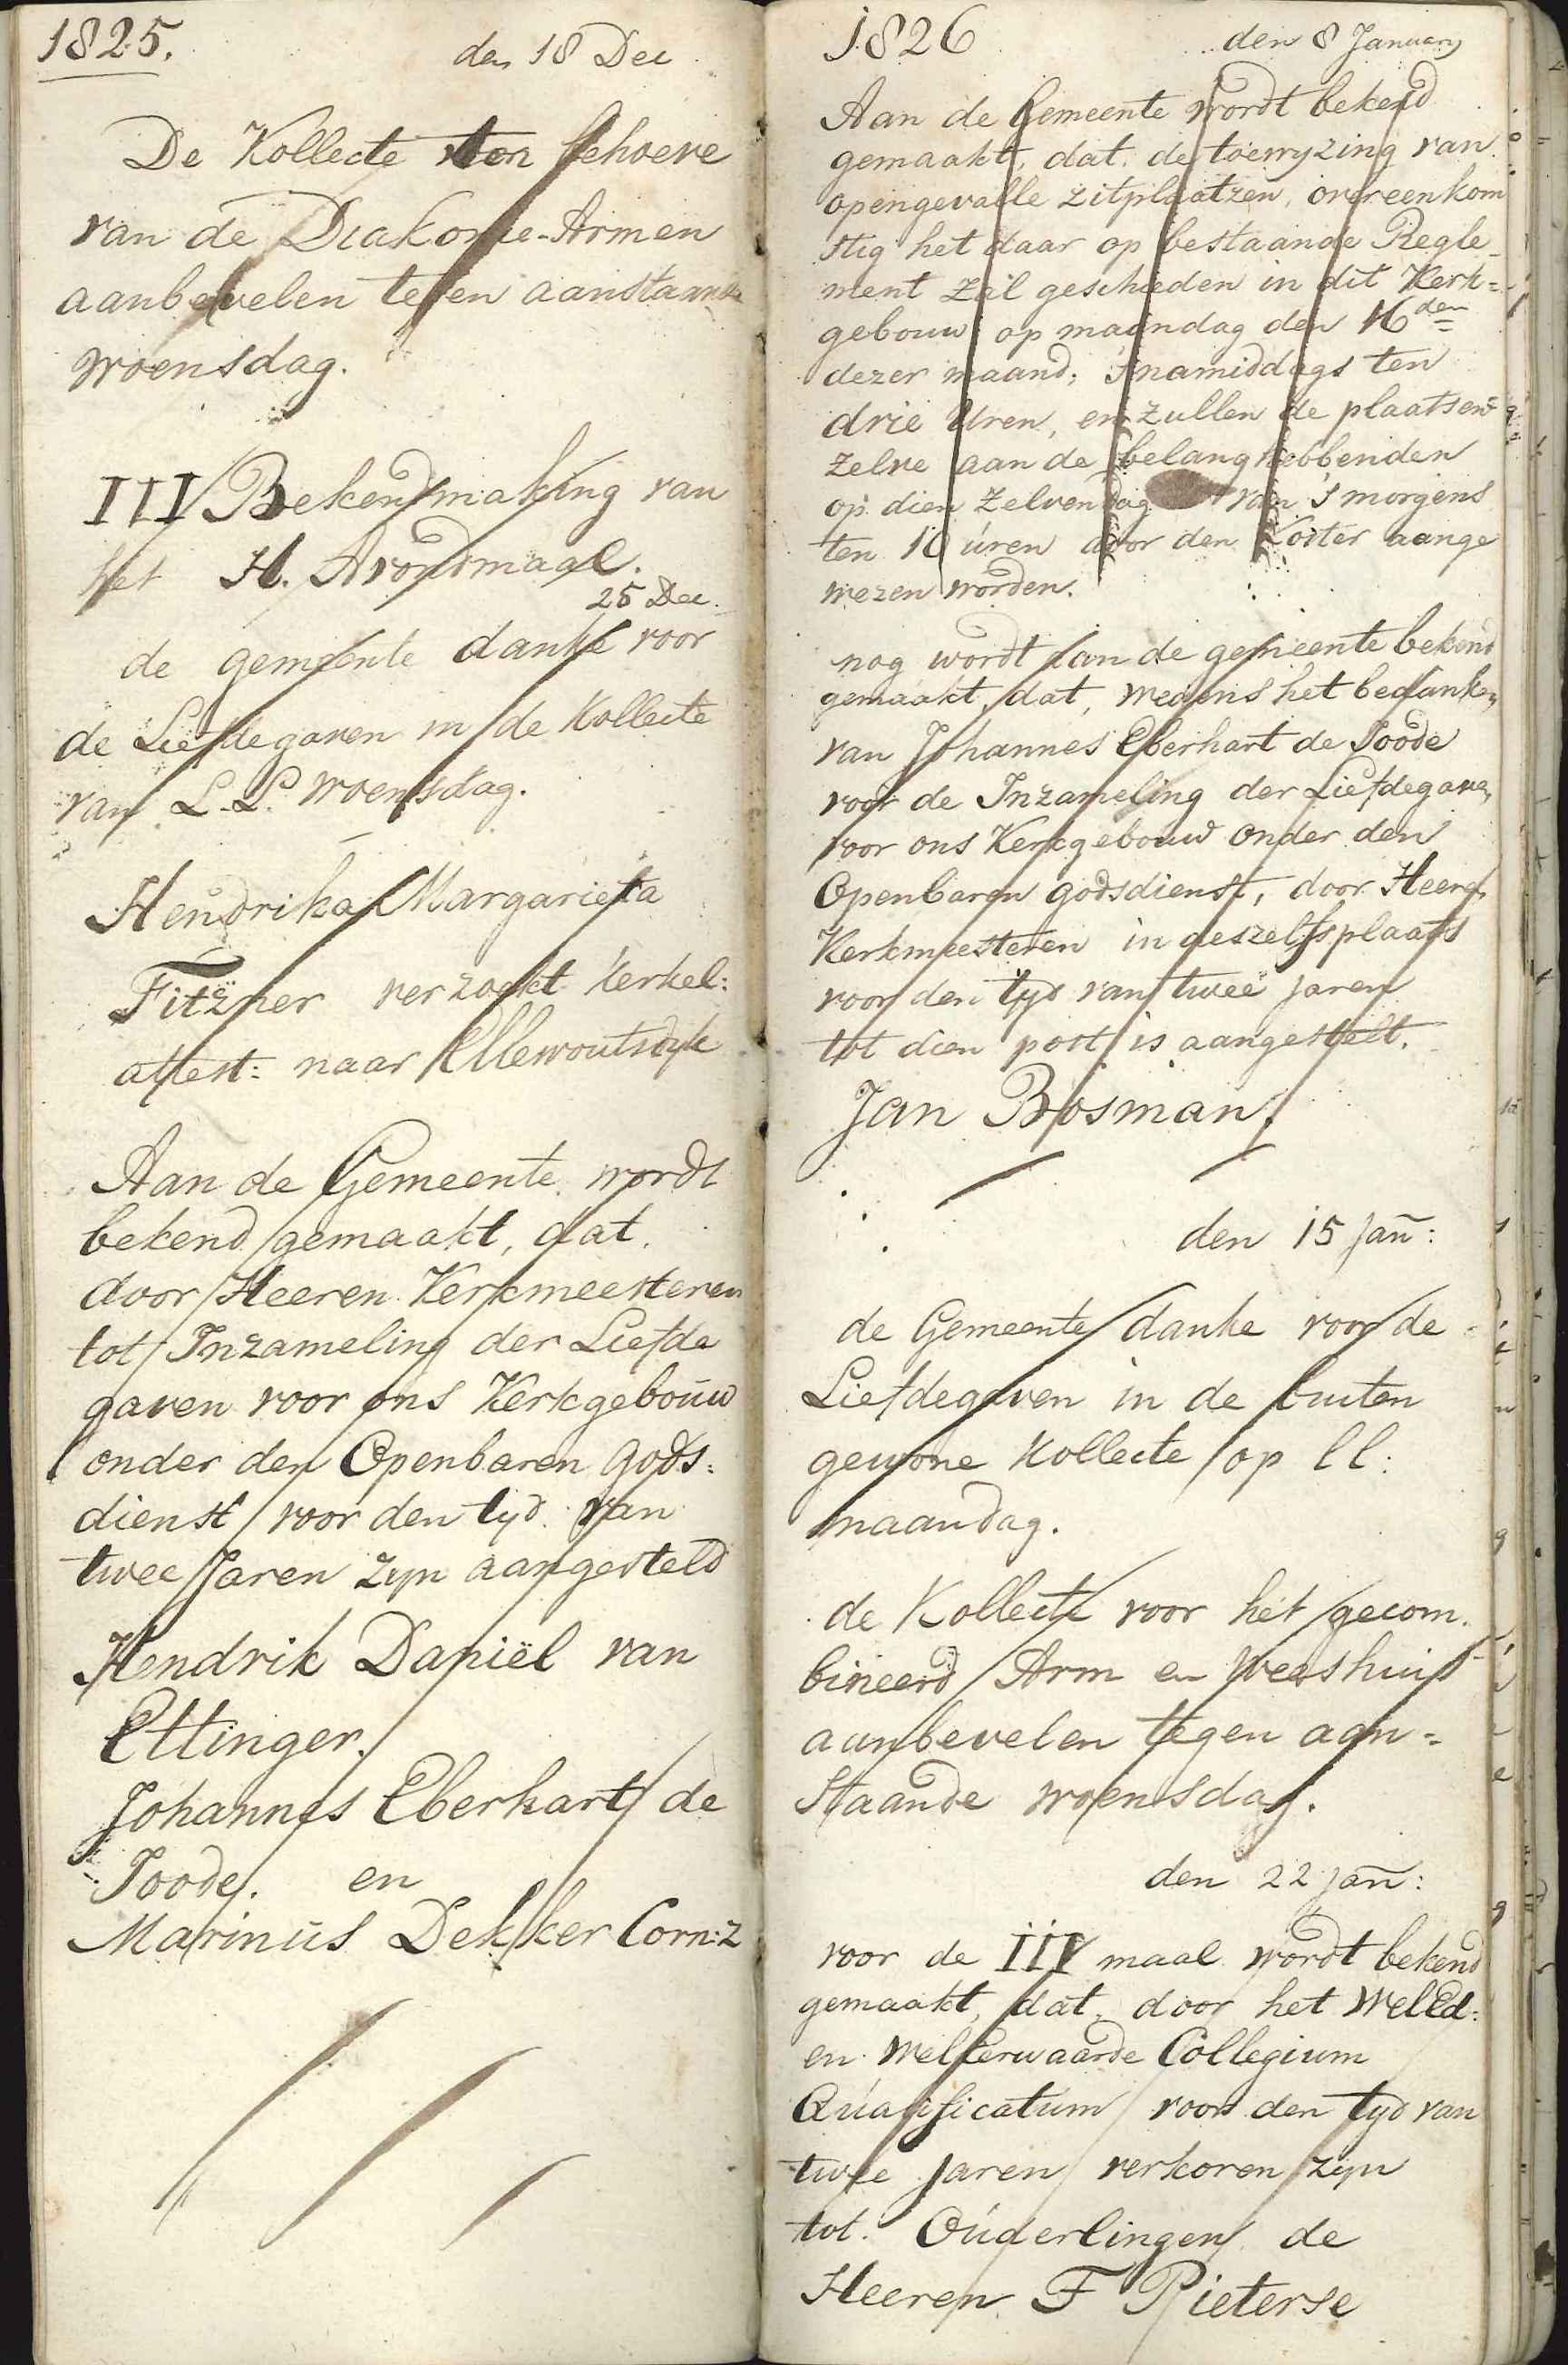 1825.
den 18 Dec
De Kollecte ten behoeve
van de Diakonie-Armen
aanbevelen tegen aanstaande
woensdag.
III Bekendmaking van
het H. Avondmaal.
25 Dec.
de gemeente danke voor
de Liefdegaven in de Kollecte
van L.L. woensdag.
Hendrika Margarieta
Fitzner verzoekt kerkel:
attest: naar Ellewoutsdyk
Aan de Gemeente wordt
bekend gemaakt, dat
door Heeren Kerkmeesteren
tot Inzameling der Liefde
gaven voor ons Kerkgebouw
onder den Openbaren gods:
dienst voor den tyd van
twee Jaren zyn aangesteld
Hendrik Daniël van
Ettinger.
Johannes Eberhart de
Joode. en
Marinus Dekker Corn:z
1826
den 8 January
Aan de Gemeente wordt bekend
gemaakt, dat de toewyzing van
opengevalle zitplaatzen, overeenkom
stig het daar op bestaande Regle-
ment zal geschieden in dit Kerk=
gebouw op maandag den 16den
dezer maand, 's namiddags ten
drie Uren, en zullen de plaatsen
zelve aan de belanghebbenden
op dien zelven dag van 's morgens
ten 10 uren door den Koster aange
wezen worden.
nog wordt aan de gemeente bekend
gemaakt, dat, wegens het bedanken
van Johannes Eberhart de Joode
voor de Inzameling der Liefdegaven
voor ons Kerkgebouw onder den
Openbaren godsdienst, door Heeren
Kerkmeesteren in deszelfs plaats
voor den tyd van twee jaren
tot dien post is aangestelt.
Jan Bosman.
den 15 Jan̄:
de Gemeente danke voor de
Liefdegaven in de buiten
gewone Kollecte op ll:
maandag.
de Kollecte voor het gecom.
bineerd Arm en Weeshuis
aanbevelen tegen aan=
staande woensdag.
den 22 jan̄:
voor de III maal wordt bekend
gemaakt, dat, door het WelEd:
en WelEerwaarde Collegium
Qualificatum voor den tyd van
twee jaren verkoren zyn
tot Ouderlingen de
Heeren F Pieterse